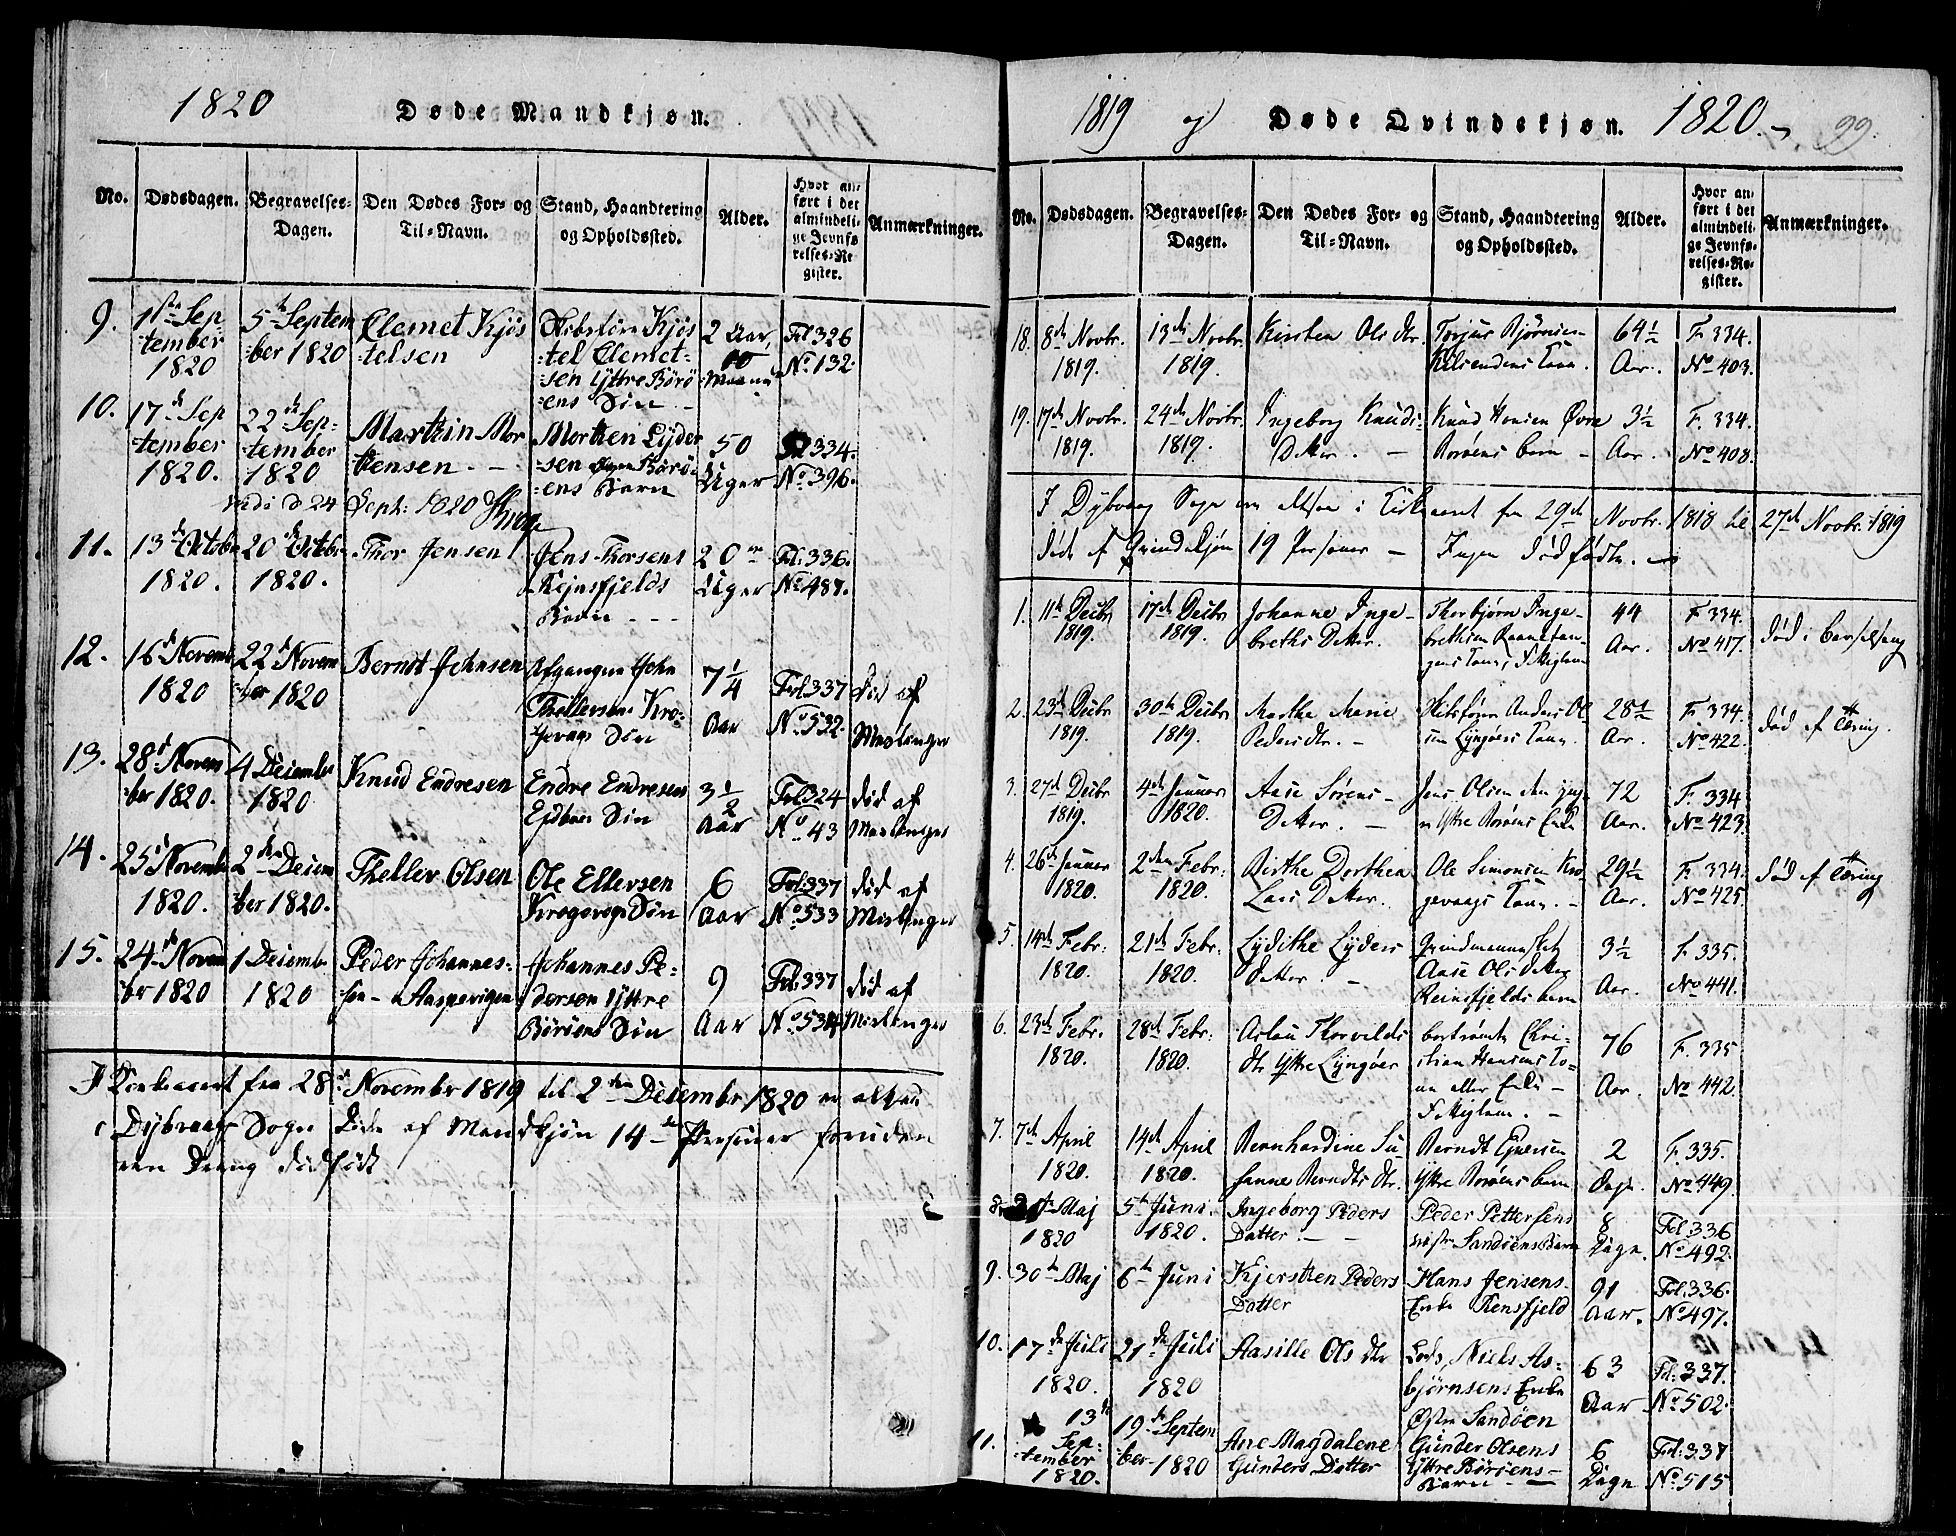 1820
Døde Mandkjøn.
No. Dødsdagen. Begravelses-Dagen. Den Dødes For- og Til-Navn. Stand, Haandtering og Opholdssted. Alder. Hvor anført i det almindelige Jevnførelses-Register. Anmærkninger.
9. 1ste September 1820 5te September 1820 Clemet Kjøstelsen Kjøstel Clemetsen Yttre Böröens Søn 2 Aar, 10 Fol 326 No. 132.
10. 17de September 1820. 22de September 1820 Marthin Mortensen. Morthen Lydersen Böröens Barn 50 Uger 334. No. 396.
d 24 Sept: 1820
11. 13de Octobr 1820. 20de Octobr 1820. Thor Jensen Jens Thorsens Rejnsfjelds Barn 20 Uger Fol: 336. No. 487.
12. 16de Novembr 1820 22de November 1820 Bernt Johnsen Afgangne John Thellersens Krogevaags Søn 7 1/4 Aar Fol: 337 No. 532. død af Meslinger
13. 28de November 1820. 4 Decembr 1820 Knud Endresen Endre Endresen Søn 3 1/2 Aar Fol: 324 No. 43 død af Meslinger
14. 25de Novembr 1820. 2den December 1820. Theller Olsen Ole Ellersen Krogevogs Søn 6 Aar Fol: 337 No. 533 død af Meslinger
15. 24de November 1820 1 Decembr 1820 Peder Johannessen Aaspevigen Johannes Pedersen Yttre Böröens Søn 9 Aar Fol: 337 No. 534 død af Meslinger
I Kirkeaaret fra 28de November 1819 til 2den Decembr 1820 er altsaa
i Dybvaags Sogn Døde af Mandkjøn 14 Personer foruden
een Dreng dødfødt
1819 og Døde Qvindekjøn. 1820. 99.
No. Dødsdagen. Begravelses-Dagen. Den Dødes For- og Til-Navn. Stand, Haandtering og Opholdssted. Alder. Hvor anført i det almindelige Jevnførelses-Register. Anmærkninger.
18. 8de Novbr. 1819. 13de Novbr. 1819. Kirsten Ols dtr. Torjus Bjørnsen Kone. 64 1/2 Aar. F. 334. No 403.
19. 17de Novbr. 1819. 24de Novbr. 1819. Ingeborg Knuds Datter. Knud Hansen Øvre Borøens barn 3 1/2 Aar. F. 334. No 408.
I Dybvaag Sogn er altsaa i Kirkeaaret fra 29de Novbr. 1818 til 27de Novbr. 1819
døde af Qvindekjøn 19 Personer – Ingen dødfødte.
1. 11te Decbr 1819. 17de Decbr 1819. Johanne Ingebreths Datter. Thorbjørn Ingebrethsen Kone, 44 Aar. F. 334. No 417. død i barselseng
2. 23de Decbr 1819. 30te Decbr 1819. Marthe Marie Peders dtr. Skibsfører Anders Olsen Lyngøers Kone. 28 1/2 Aar. F. 334. No 422. død af Tæring.
3. 27de Decbr 1819. 4de Januar 1820. Aase Sørens Datter. Jens Olsen den yngre Yttre Borøens Enke 72 Aar. F. 334 No 423.
4. 26de Januar 1820. 2den Febr: 1820. Birthe Dorthea Lars Datter. Ole Simonsen Krogevaags Kone. 29 1/2 Aar. F. 334. No 425 død af Tæring
5. 14de Febr: 1820. 21de Febr: 1820. Lydithe Lyders datter. Qvindemennesket Aase Ols datter Reinsfjelds barn 3 1/2 Aar. F. 335. No 441.
6. 23de Febr. 1820. 28de Febr: 1820. Aslau Thorvilds dtr Yttre Lyngøer bortrømte Christian Hansens Kone eller Enke 76 Aar. F. 335 No 442.
7. 7de April 1820. 14de April 1820. Bernhardine Susanne Berndts dtr. Berndt Ejversen Yttre Borøens barn 2 Dage. F. 335. No 449.
8. Maj 1820 5te Juni. 1820. Ingeborg Peders Datter. Peder Pettersens Sandøens Barn 8 Dage. Fol 336 No 492.
9. 30te Maj 6te Juni Kjersten Peders Datter Hans Jensens Enke Rensfjeld 91 Aar. Fol: 336. No. 497.
10. 17de Juli 1820. 21de Juli 1820 Aasille Ols dtr Lods, Niels Asbjørnsens Enke Østre Sandøen 63 Aar Fol: 337. No 502.
11. 13de September 1820. 19de September 1820 Ane Magdalene Gunders Datter Gunder Olsens Yttre Børøens Barn 6 Dage Fol: 337 No. 515